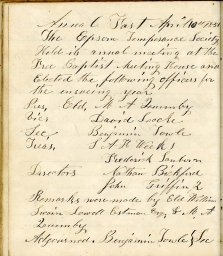 Annal Fast April 10th
The Epsom Temperance Society
Held in annal meeting at the
Free Baptist Meeting House and
Elected the following officers for
the ensueing year
Pres, Eld, M A Quimby
Vice David Locke
Sec, Benjamin Towle
Treas, S A H Weeks
Frederick Sanborn
Directors Nathan Bickford
John Griffin 2
Remarks were made by Eld William
Swain Lowell Eastman Esq & M A
Quimby
Adjourned Benjamin Towle Sec